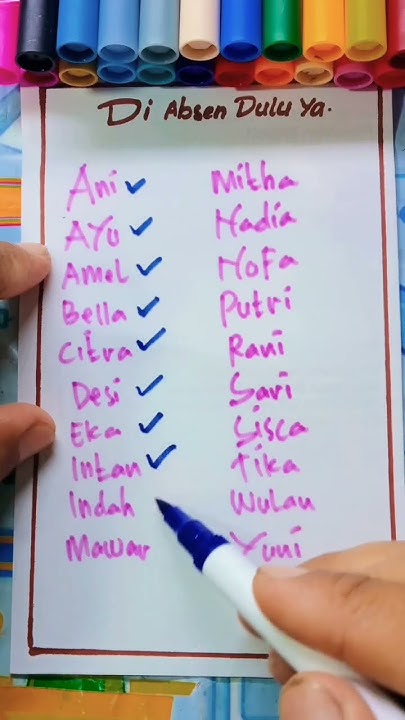 Di Absen Dulu Ya.
Ani ✓
AYu ✓
Amel ✓
Bella ✓
Citra ✓
Desi ✓
Eka ✓
Intan ✓
Indah
Mawar
Mitha
Nadia
NoFa
Putri
Rani
Sari
Sisca
Tika
Wulan
Yuni